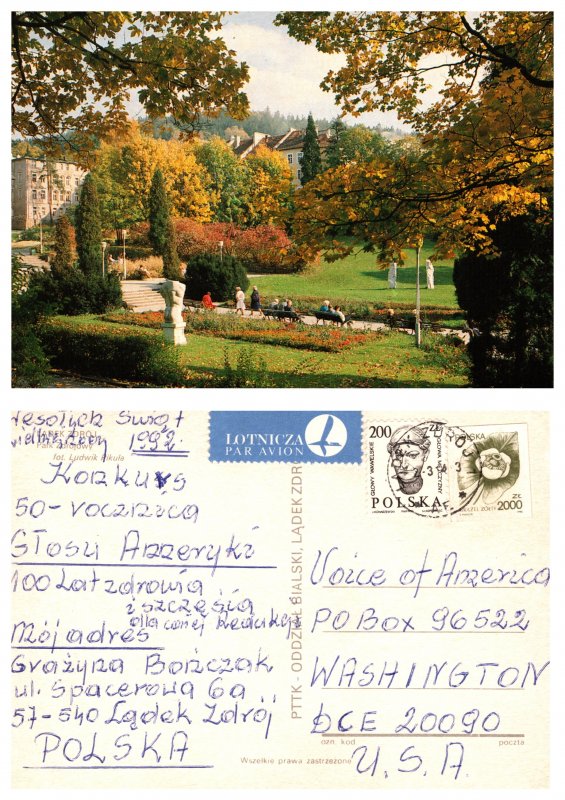 Wesołych Świąt
1992
LĄDEK ZDRÓJ
Park Zdrojowy
fot. Ludwik Pikuła
Konkurs
50-rocznica
Głosu Ameryki
100 Lat zdrowia
i szczęścia
dla całej Redakcji
Mój adres
Grażyna Borczak
ul. Spacerowa 6a
57-540 Lądek Zdrój
POLSKA
LOTNICZA
PAR AVION
PTTK - ODDZIAŁ BIALSKI, LĄDEK ZDR
200 ZŁ
GŁOWY WAWELSKIE
GŁOWA MĘŻCZYZNY
POLSKA
POLSKA
2000 ZŁ
Voice of America
PO Box 96522
WASHINGTON
DCE 20090
ozn. kod
poczta
U.S.A.
Wszelkie prawa zastrzeżone